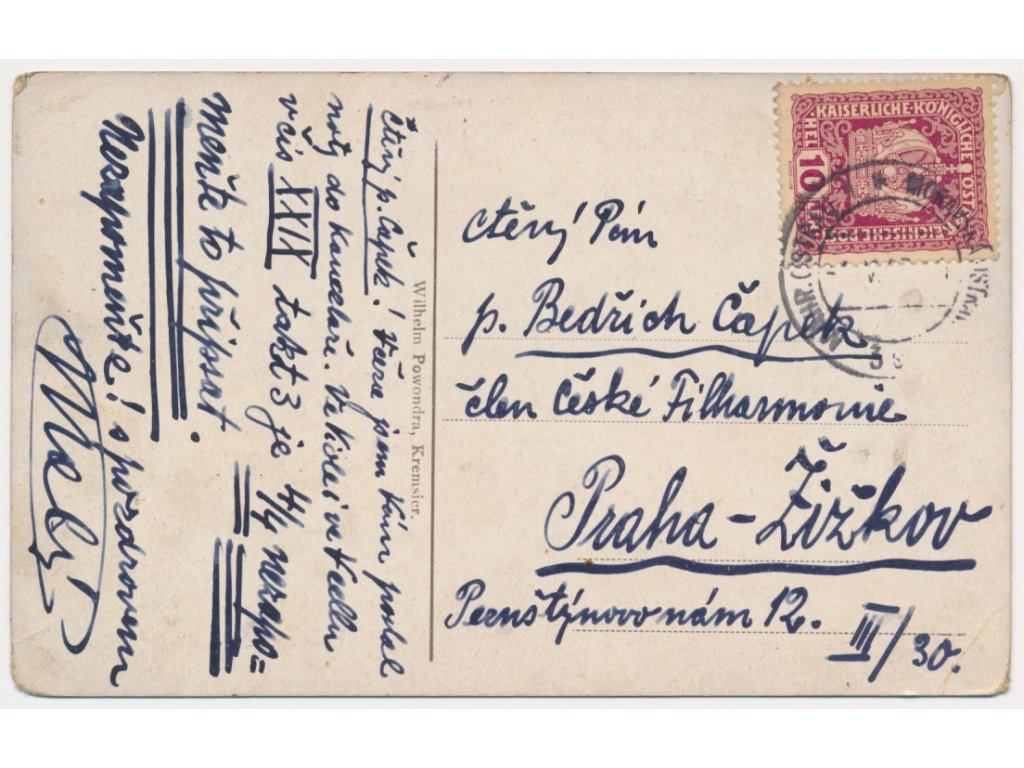 Ctěný p. Čapek! Včera jsem Vám poslal
noty do kanceláře. Ve
v čís XXIX takt 3 je 4/4 nezapo=
meňte to připsat.
Nezapomeňte! S pozdravem
Wilhelm Powondra, Kremsier.
KAISERLICHE KÖNIGLICHE
HEL 10
Ctěný Pán
p. Bedřich Čapek
člen České Filharmonie
Praha-Žižkov
Pernštýnovo nám 12.
III/30.